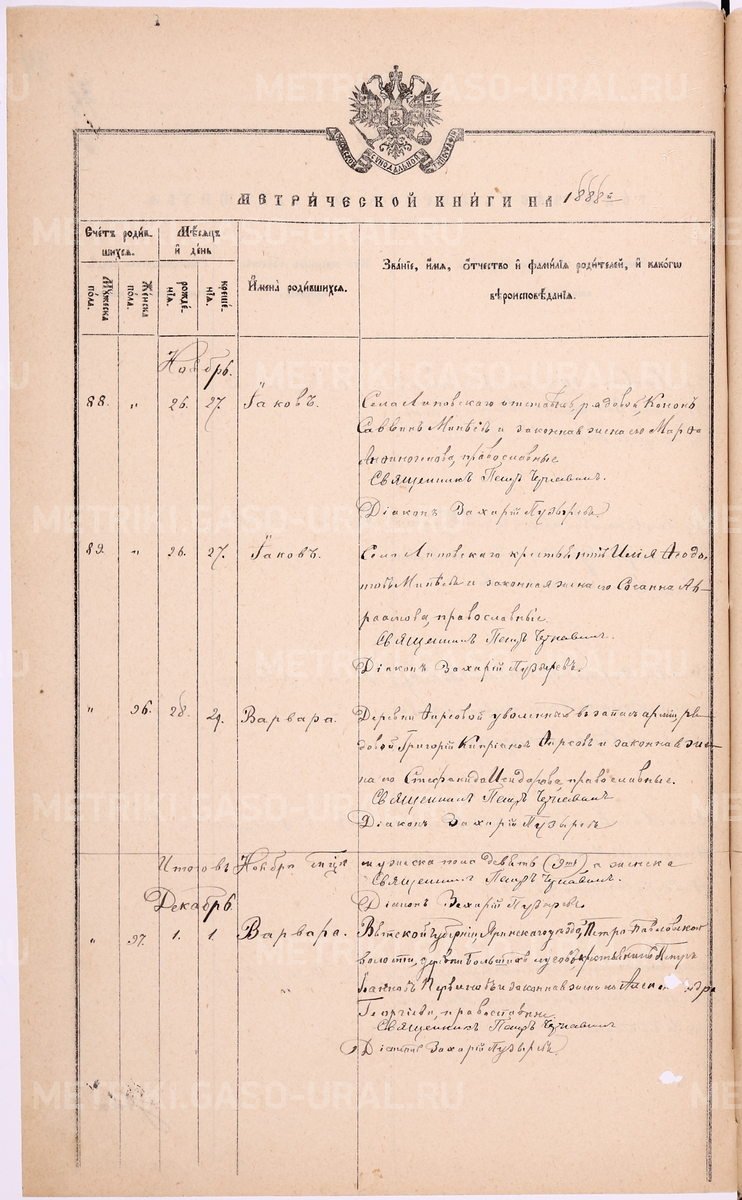 МЕТРИЧЕСКОЙ КНИГИ НА 1888й
Счетъ родив-
шихся.
Мѣсяцъ
и день
Мужеска
пола.
Женска
пола.
рожде-
нія.
креще-
нія.
Имена родившихся.
Званіе, имя, отчество и фамилія родителей, и какого
вѣроисповѣданія.
Ноябрь.
88. " 26. 27. Іаковъ. Села Липовскаго отставн. рядовой Кононъ
Саввинъ Минѣевъ и законная жена его Марфа
православные
Священникъ Петръ
Діаконъ Захарій Пузыревъ
89. " 26. 27. Іаковъ. Села Липовскаго крестьянинъ Илія Ѳедо-
товъ Минѣевъ и законная жена его Сосанна Ав-
раамова, православные.
Священникъ Петръ
Діаконъ Захарій Пузыревъ.
" 96. 28. 29. Варвара. Деревни Фирсовой уволенный въ запасъ арміи ря-
довой Григорій Кипріановъ Фирсовъ и законная же-
на его Стефанида Исидорова, православные.
Священникъ Петръ
Діаконъ Захарій Пузыревъ
Итого въ Ноябрѣ мужеска пола девять (9ть) а женска
Священникъ Петръ
Діаконъ Захарій Пузыревъ.
Декабрь.
" 97. 1. 1. Варвара. Вятской губерніи Яранскаго уѣзда, Петро-Павловской
волости, крестьянинъ Петръ
и законная жена его Александра
Георгіева, православные
Священникъ Петръ
Діаконъ Захарій Пузыревъ.
METRIKI.GASO-URAL.RU